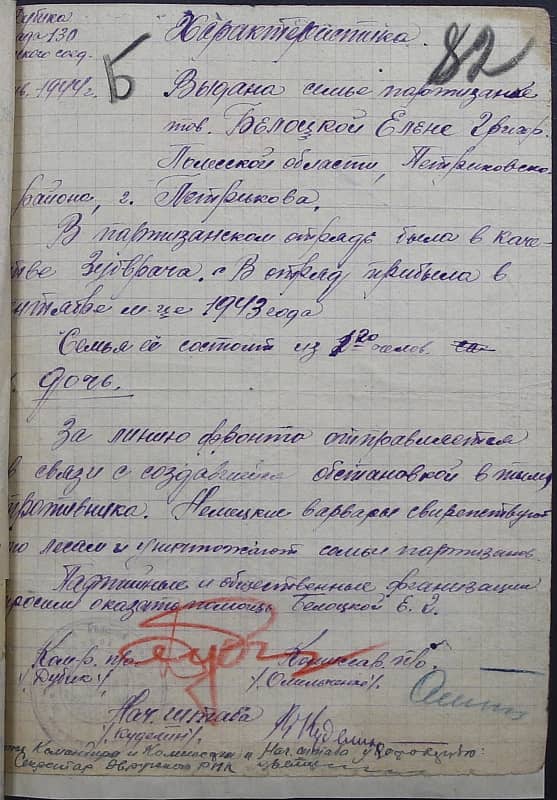 Характеристика
ада 130
82
1944 г. Б
Выдана семье партизана
тов. Белоцкой Елене Григор.
Полесской области, Петриковско
района, г. Петрикова.
В партизанском отряде была в каче
тве Зубврача. В отряд прибыла в
нтябре м-це 1943 года
Семья её состоит из человек
дочь.
За линию фронта отправляется
в связи с создавшейся обстановкой в тылу
противника. Немецкие варвары свирепствуют
по лесам и уничтожают семьи партизанов.
Партийные и общественные организации
просим оказать помощь Белоцкой Е.
Комр. п/о. Комиссар. п/о.
/Дубик/
Нач. штаба
/Куделин/ Куделин
Командира и Комиссара и Нач. штаба удостоверяю:
Секретар РИК